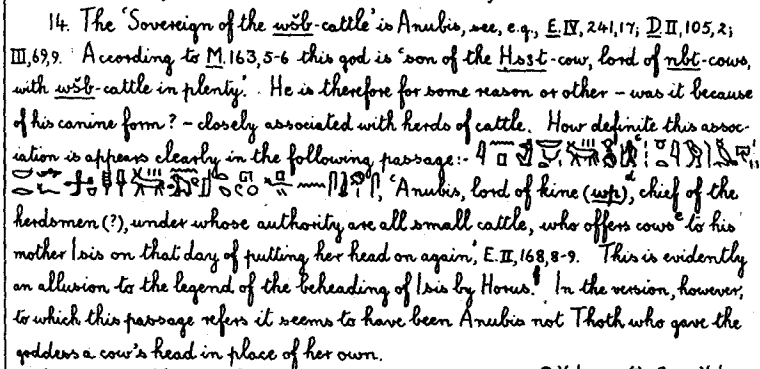 14. The 'Sovereign of the wšb-cattle' is Anubis, see, e.g., E. IV, 241, 17; D. II, 105, 2;
III, 69, 9. According to M. 163, 5-6 this god is 'son of the Hsȝt-cow, lord of nbt-cows,
with wšb-cattle in plenty.' He is therefore for some reason or other – was it because
of his canine form? – closely associated with herds of cattle. How definite this assoc-
iation is appears clearly in the following passage:-
'Anubis, lord of kine (wp),ᵈ chief of the
herdsmen (?), under whose authority are all small cattle, who offers cowsᵉ to his
mother Isis on that day of putting her head on again', E. II, 168, 8-9. This is evidently
an allusion to the legend of the beheading of Isis by Horus.ᶠ In the version, however,
to which this passage refers it seems to have been Anubis not Thoth who gave the
goddess a cow's head in place of her own.